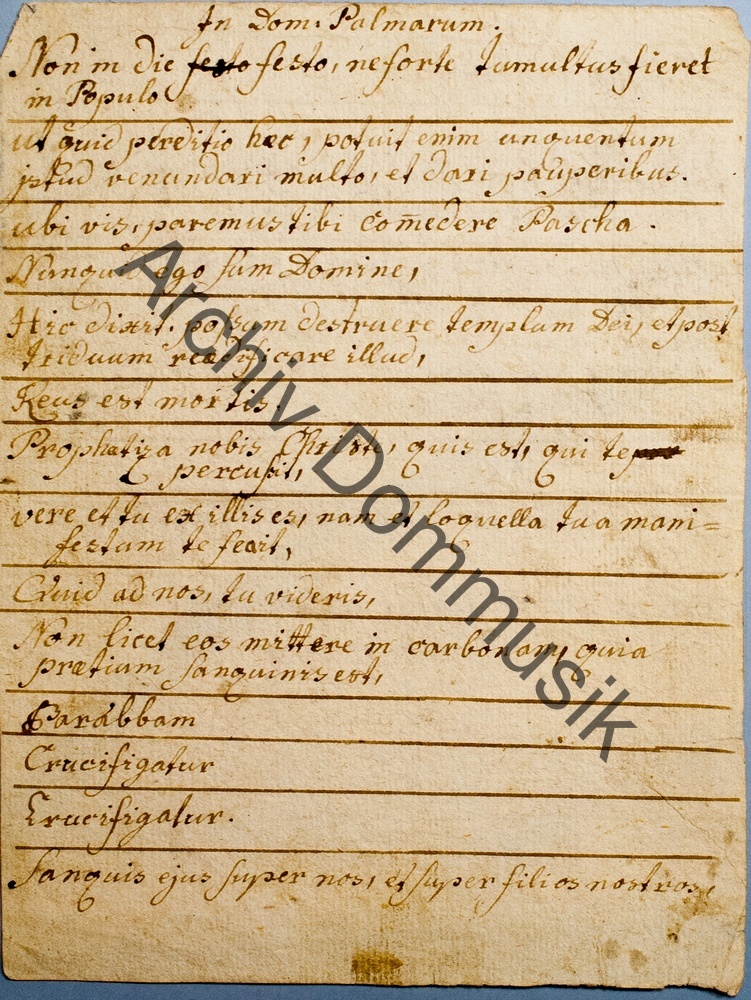 In Dom. Palmarum.
Non in die festo festo, ne forte tumultus fieret
in Populo
ut quid perditio hæc, potuit enim unguentum
istud venundari multo, et dari pauperibus.
ubi vis, paremus tibi com̄edere Pascha.
Nunquid ego sum Domine,
Hic dixit. possum destruere templum Dei, et post
triduum reædificare illud,
Reus est mortis.
Prophetiza nobis Christe, quis est, qui te
percussit,
vere et tu ex illis es, nam et loquella tua mani=
festum te fecit,
Quid ad nos, tu videris,
Non licet eos mittere in carbonam, quia
prætium sanguinis est,
Barabbam
Crucifigatur
Crucifigatur.
Sanguis ejus super nos, et super filios nostros,
Archiv Dommusik